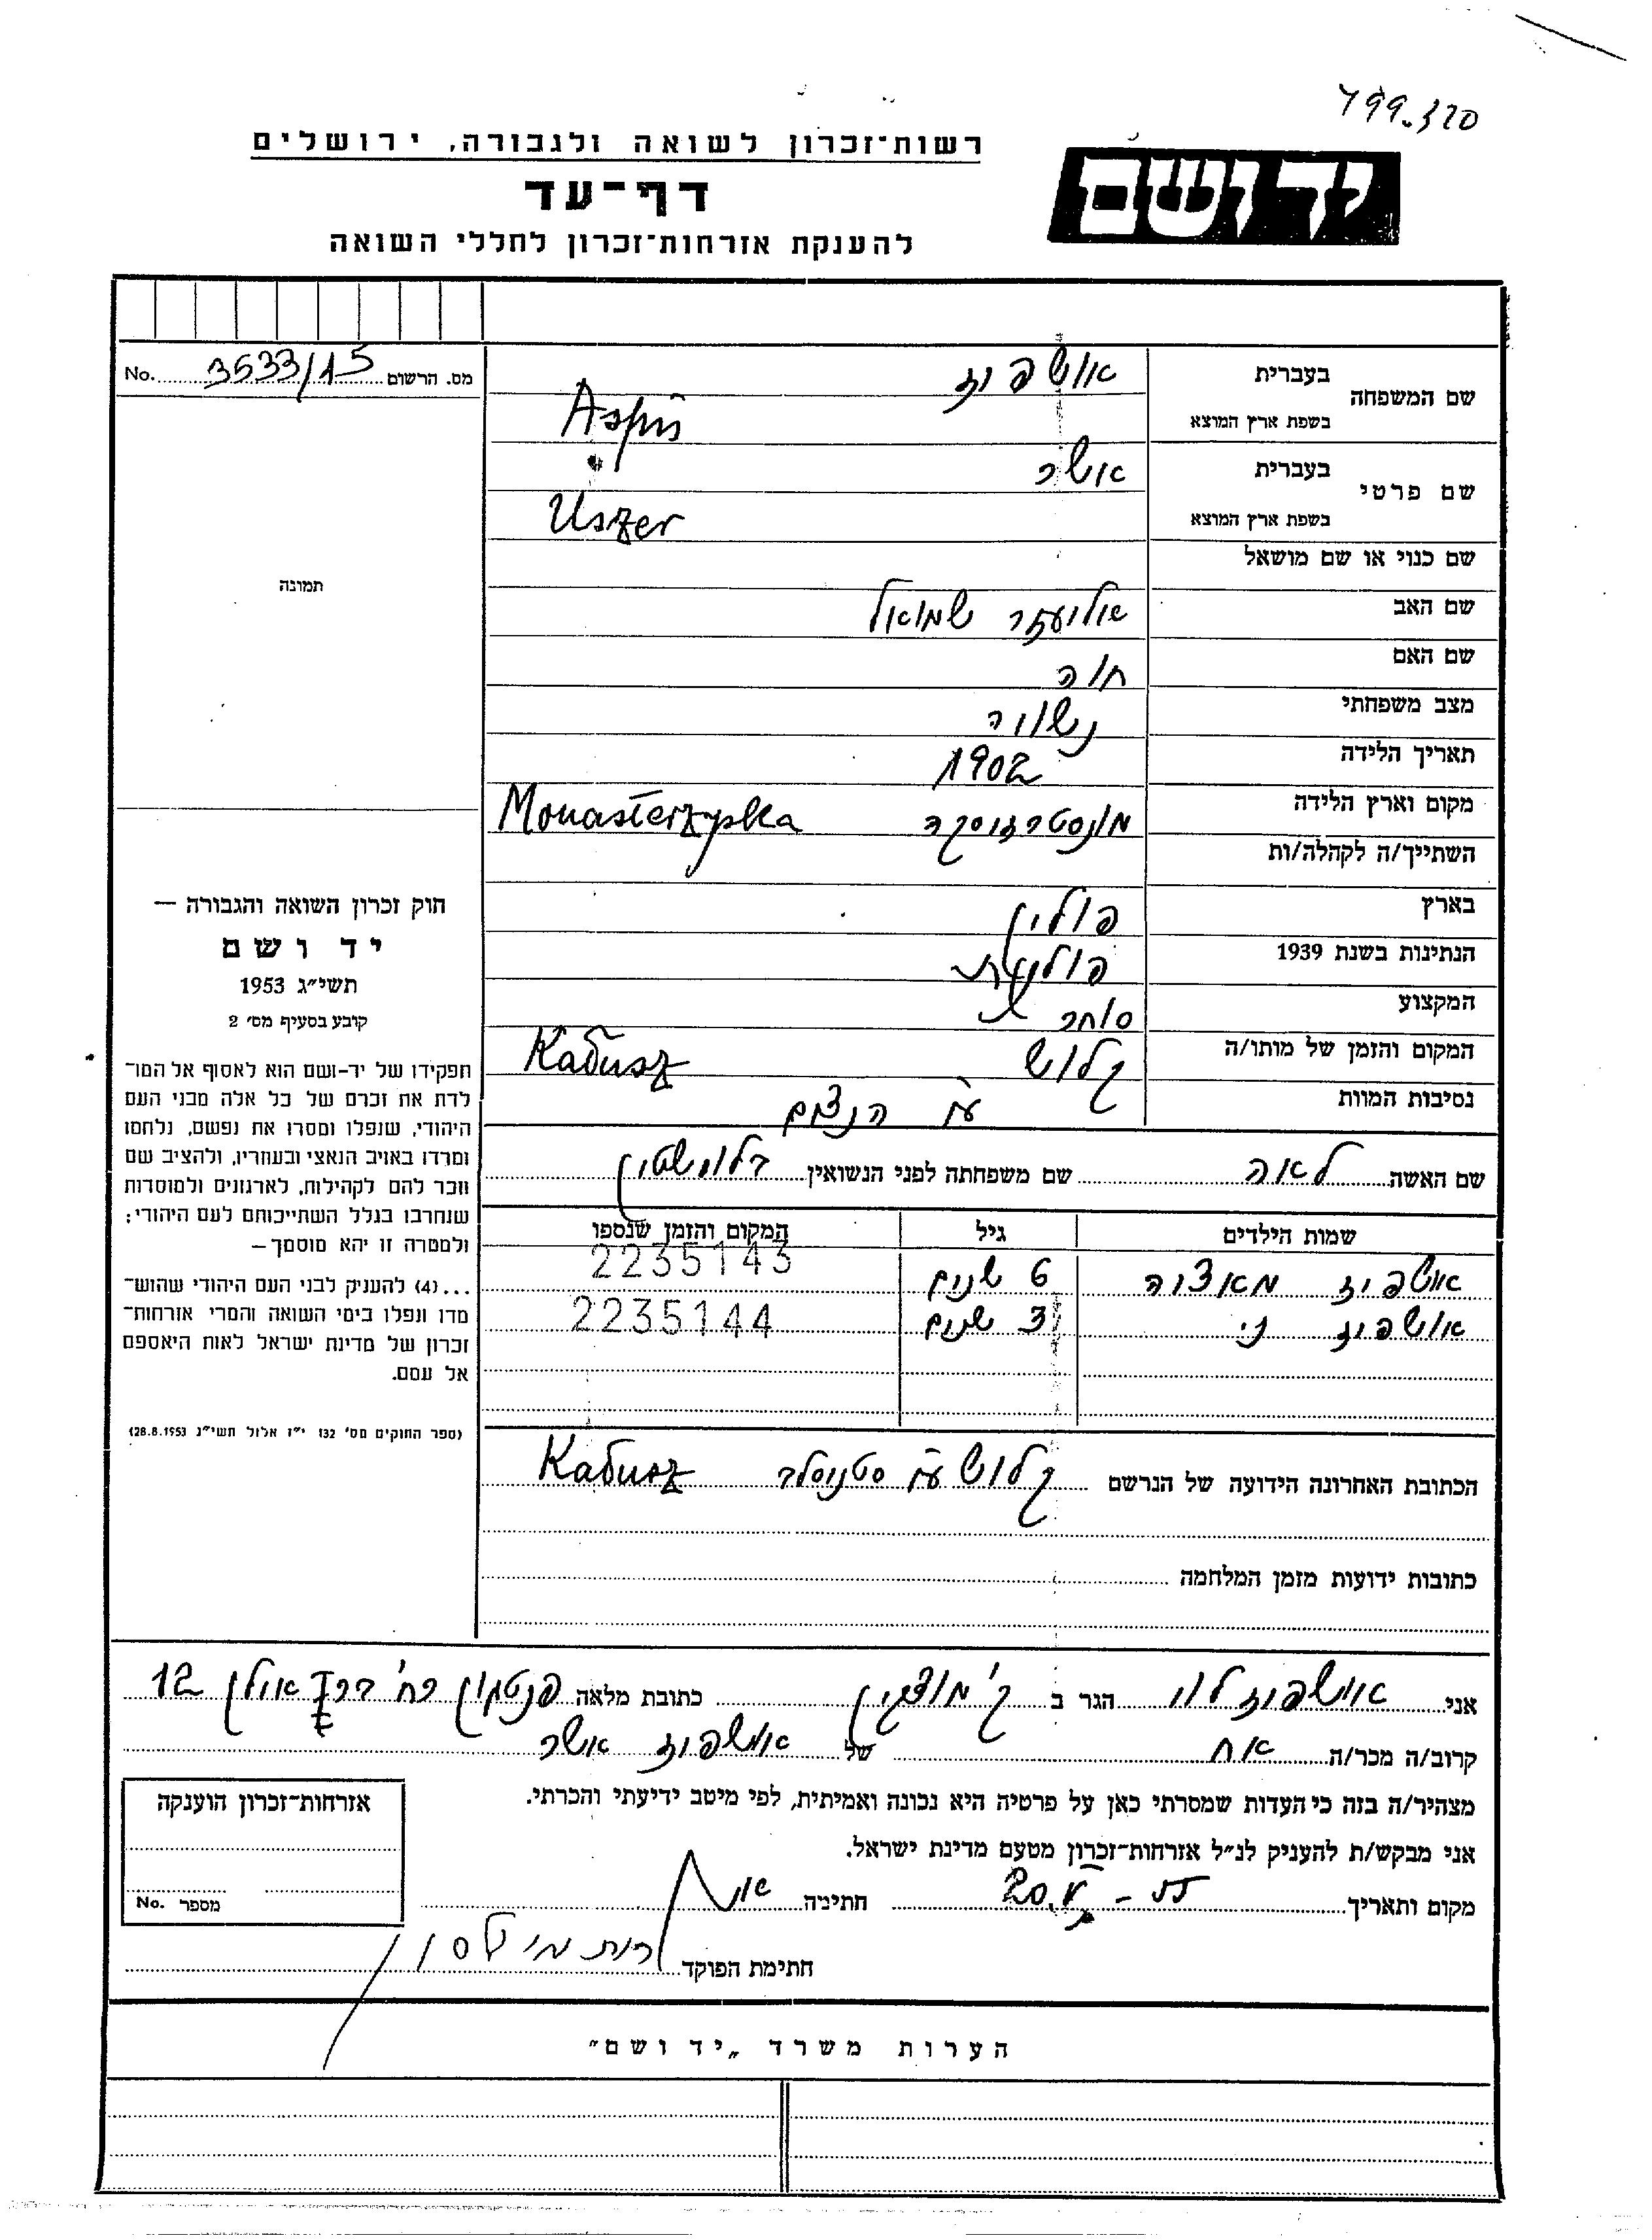 799.320
רשות־זכרון לשואה ולגבורה, ירושלים
יד ושם
דף־עד
להענקת אזרחות־זכרון לחללי השואה
מס. הרשום 3533/15 No.
שם המשפחה
בעברית אושפיז
בשפת ארץ המוצא
שם פרטי
בעברית אושר
בשפת ארץ המוצא Uszer
שם כנוי או שם מושאל
שם האב אליעזר שמואל
שם האם חוה
מצב משפחתי נשוי
תאריך הלידה 1902
מקום וארץ הלידה מונסטרזיסקה Monasterzyska
השתייך/ה לקהלה/ות
בארץ פולין
הנתינות בשנת 1939 פולנית
המקצוע סוחר
המקום והזמן של מותו/ה קלוש Kałusz
נסיבות המוות ע״י הנצים
שם האשה לאה שם משפחתה לפני הנשואין בלוישטין
שמות הילדים גיל המקום והזמן שנספו
אושפיז 6 שנים 2235143
אושפיז 3 שנים 2235144
תמונה
חוק זכרון השואה והגבורה —
יד ושם
תשי״ג 1953
קובע בסעיף מס׳ 2
תפקידו של יד-ושם הוא לאסוף אל המו־
לדת את זכרם של כל אלה מבני העם
היהודי, שנפלו ומסרו את נפשם, נלחמו
ומרדו באויב הנאצי ובעוזריו, ולהציב שם
וזכר להם לקהילות, לארגונים ולמוסדות
שנחרבו בגלל השתייכותם לעם היהודי;
ולמטרה זו יהא מוסמך—
...(4) להעניק לבני העם היהודי שהוש־
מדו ונפלו בימי השואה והמרי אזרחות־
זכרון של מדינת ישראל לאות היאספם
אל עמם.
(ספר החוקים מס׳ 132 י״ז אלול תשי״ג 28.8.1953)
הכתובת האחרונה הידועה של הנרשם קלוש ע״י סטניסלב Kałusz
כתובות ידועות מזמן המלחמה
אני אושפיז לוי הגר ב ק׳ מוצקין כתובת מלאה 12
קרוב/ה מכר/ה אח של אושפיז אושר
מצהיר/ה בזה כי העדות שמסרתי כאן על פרטיה היא נכונה ואמיתית, לפי מיטב ידיעתי והכרתי.
אני מבקש/ת להעניק לנ״ל אזרחות־זכרון מטעם מדינת ישראל.
מקום ותאריך 20.V - 55 חתימה
חתימת הפוקד
אזרחות־זכרון הוענקה
מספר No.
הערות משרד „יד ושם״